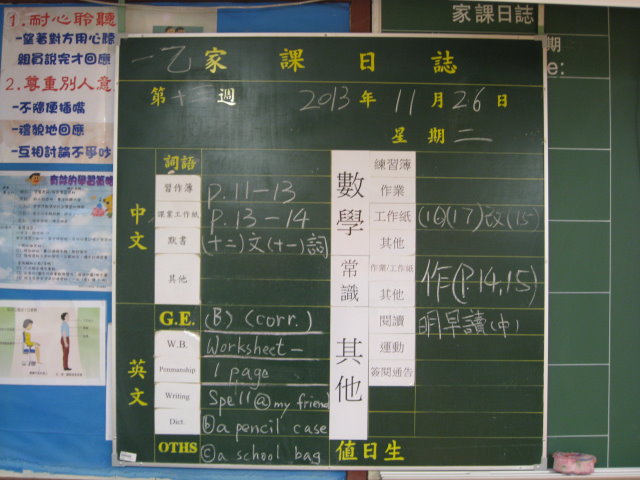 1.耐心聆聽
-望著對方用心聽
-組員說完才回應
2.尊重別人意
-不隨便插嘴
-禮貌地回應
-互相討論不爭吵
有效的學習策略
家課日誌
期
e:
一乙 家課日誌
第十三週 2013年11月26日
星期二
中文
詞語
習作簿 P.11-13
課業工作紙 P.13-14
默書 (十二)文(十一)詞
其他
英文
G.E. (B) (corr.)
W.B. Worksheet -
Penmanship 1 page
Writing Spell ⓐ my friend
Dict. ⓑ a pencil case
OTHS ⓒ a school bag
數學
練習簿
作業
工作紙 (16)(17)改(15)
其他
常識
作業/工作紙 作(P.14,15)
其他
其他
閱讀 明早讀(中)
運動
簽閱通告
值日生